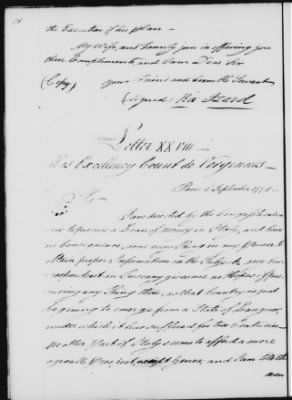 the Execution of the plan —
My Wife, and family join in offering you
their Compliments, and I am Dear Sir
(Copy) your Friend and hum Ble Servant
(signed) Ra Izard
Letter XXVIII
His Excellency Count de Vergennes —
Paris 2 September 1778 —
Sir
I am directed by the Congress
to procure a Loan of Money in Italy, and have
in consequence, done every thing in my power to
obtain proper Information on the Subject. my
correspondent in Tuscany gives me no Hopes of
procuring any Thing there, as that Country is just
beginning to emerge from a State of Languor,
under which it has suffered for two Centuries
another Part of Italy seems to afford a more
agreeable Prospect, except Genoa, and I am